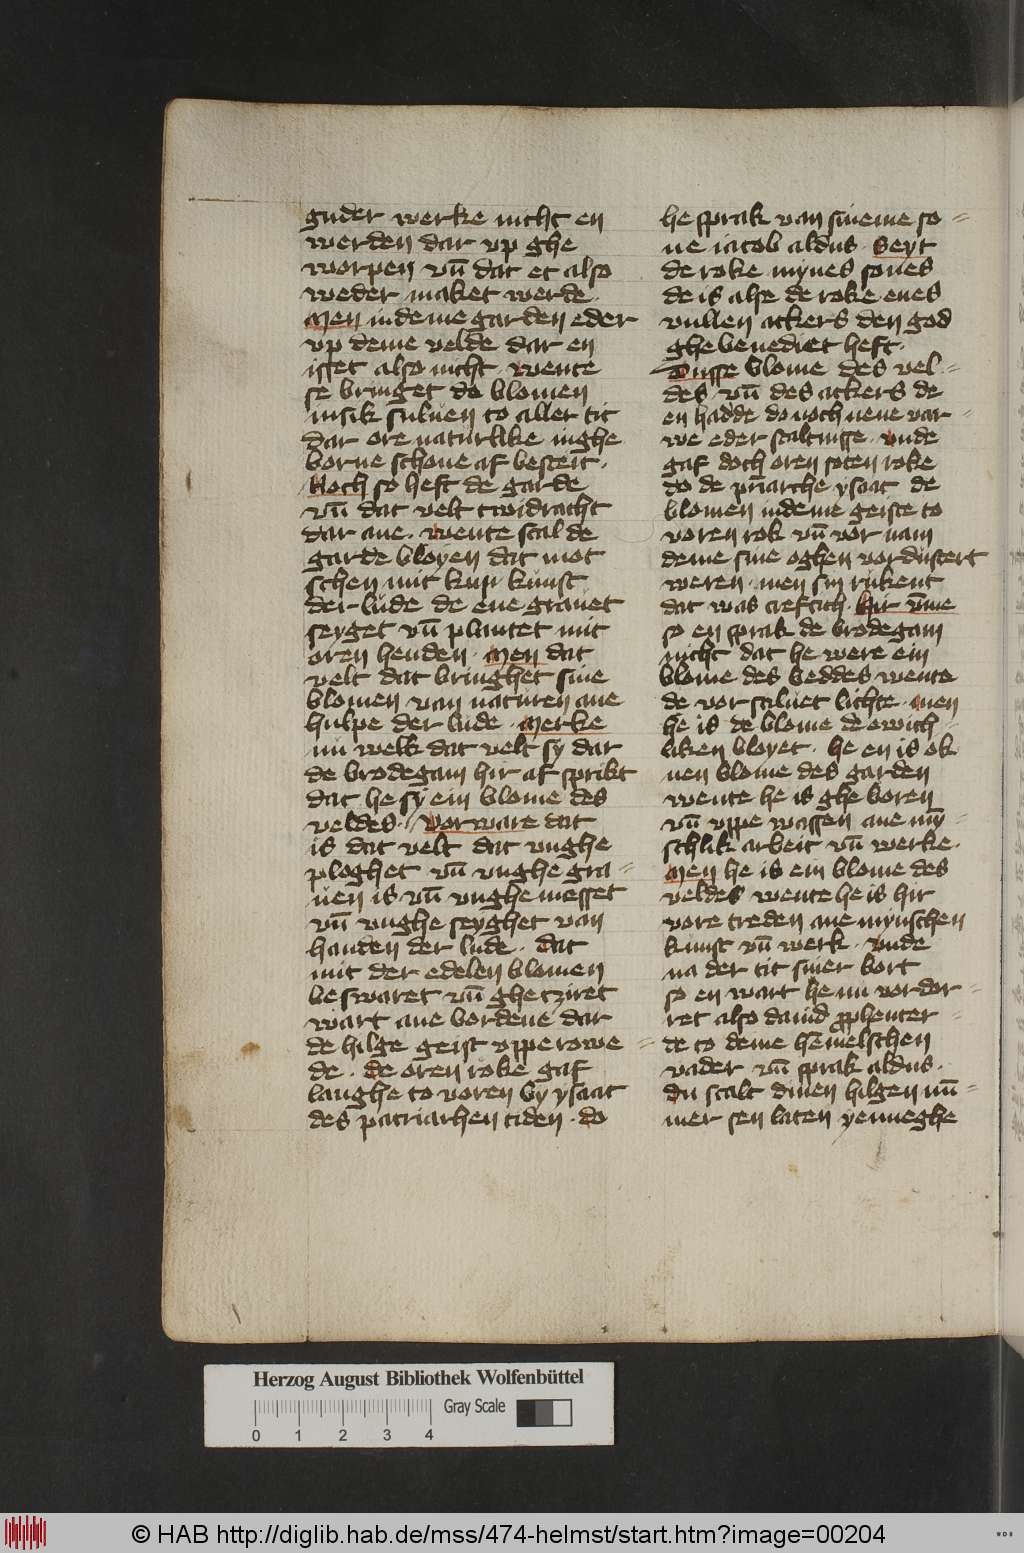 guder werke nicht en
werden dar vp ghe
worpen vn̄ dat et also
weder maket werde ·
Men in deme garden eder
vp deme velde dar en
isset also nicht · wente
se bringet de blomen
in sik suluen to aller tit
dar ore naturlike in ghe
borne schone af besteit ·
Noch so heft de garde
vn̄ dat velt twidracht
dar ane · wente scal de
garde bloyen dat mot
schen mit kunst
der lude de ene grauet
seyget vn̄ plantet mit
oren henden · Men dat
velt dat bringhet sine
blomen van naturen ane
hulpe der lude · Merke
nu welk dat velt sy dar
de brodegam hir af sprikt
dat he sy ein blome des
veldes · Vorware dat
is dat velt dat vnghe
ploghet vn̄ vnghe gra=
uen is vn̄ vnghe messet
vn̄ vnghe seyghet van
handen der lude · dat
mit der edelen blomen
beswaret vn̄ ghetziret
wart ane bordene dar
de hilge geist vppe rowe=
de · de oren roke gaf
langhe to voren by ysaac
des patriarhen tiden · do
he sprak van sineme so=
ne iacob aldus · Seyt
de roke mynes sones
de is alse de roke enes
vullen ackers den god
ghebenediet heft ·
Dusse blome des vel=
des vn̄ des ackers de
en hadde do noch nene var=
we eder scaltnisse · vnde
gaf doch oren soten roke
do de priarche ysaac de
blomen in deme geiste to
voren rok vn̄ vor nam
deme sine oghen vordustert
weren · men sin rukent
dat was creftich · Hir v̄me
so en sprak de brodegam
nicht dat he were ein
blome des beddes wente
de vor saluet lichte · men
he is de blome de ewich=
liken bloyet · he en is ok
nen blome des garden
wente he is ghe boren
vn̄ vppe wassen ane my̅=
schlik arbeit vn̄ werke ·
Men he is ein blome des
veldes wente he is hir
vore treden ane mynschen
kunst vn̄ werk · vnde
na der tit siner bort
so en wart he nu vordor=
ret also dauid ꝓphenter=
de to deme hēmelschen
vader vn̄ sprak aldus ·
du scalt dinen hilgen nū=
mer sen laten yenneghe
Herzog August Bibliothek Wolfenbüttel
Gray Scale
0 1 2 3 4
© HAB http://diglib.hab.de/mss/474-helmst/start.htm?image=00204